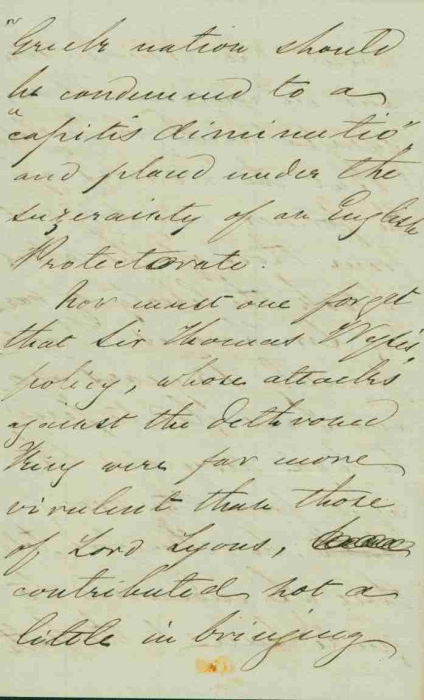 Greek nation should
be condemned to a
"capitis diminutio"
and placed under the
suzerainty of an English
Protectorate.
Nor must one forget
that Sir Thomas Wyse's
policy, whose attacks
against the dethroned
King were far more
virulent than those
of Lord Lyons,
contributed not a
little in bringing